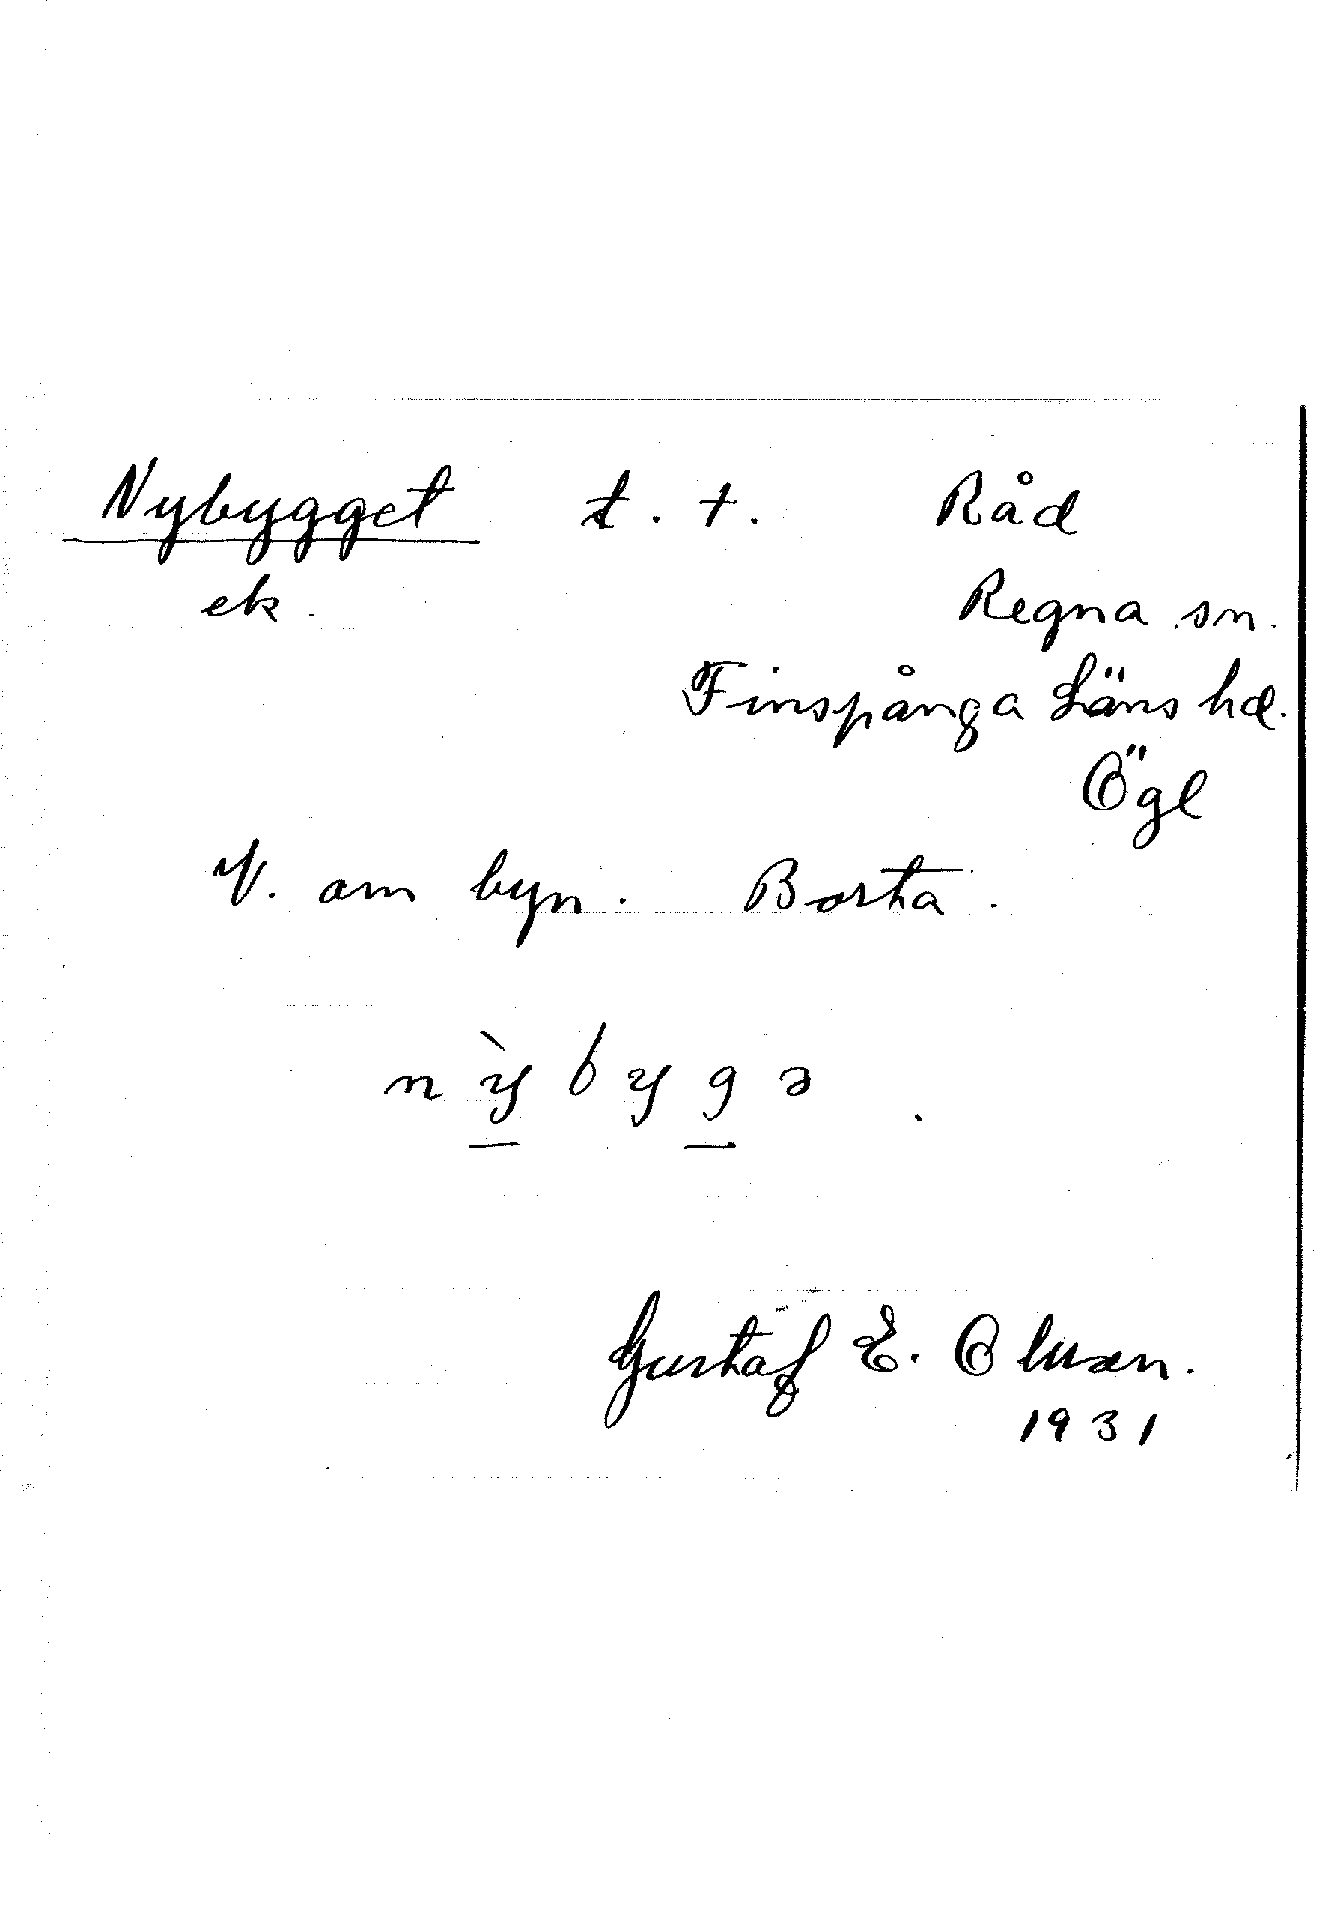 Nybygget t. t. Råd
ek. Regna sn.
Finspånga Läns hd.
Ögl
V. om byn. Borta.
nỳbygə.
Gustaf E. Olsson.
1931